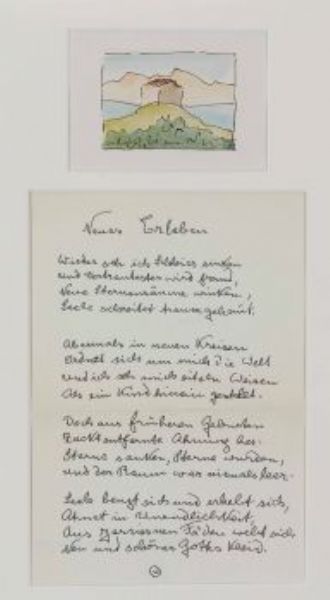 Neues Erleben
Wieder seh ich Schleier sinken
und Vertrautestes wird fremd,
Neue Sternenräume winken,
Seele schreitet traumgehemmt.
Abermals in neuen Kreisen
Ordnet sich um mich die Welt
und ich seh mich eitlen Weisen
Als ein Kind hinein gestellt.
Doch aus früheren Geburten
Zuckt entfernte Ahnung her:
Sterne sanken, Sterne wurden,
und der Raum war niemals leer.
Seele beugt sich und erhebt sich,
Atmet in Unendlichkeit,
Aus zerrissnen Fäden webt sich
Neu und schöner Gottes Kleid.